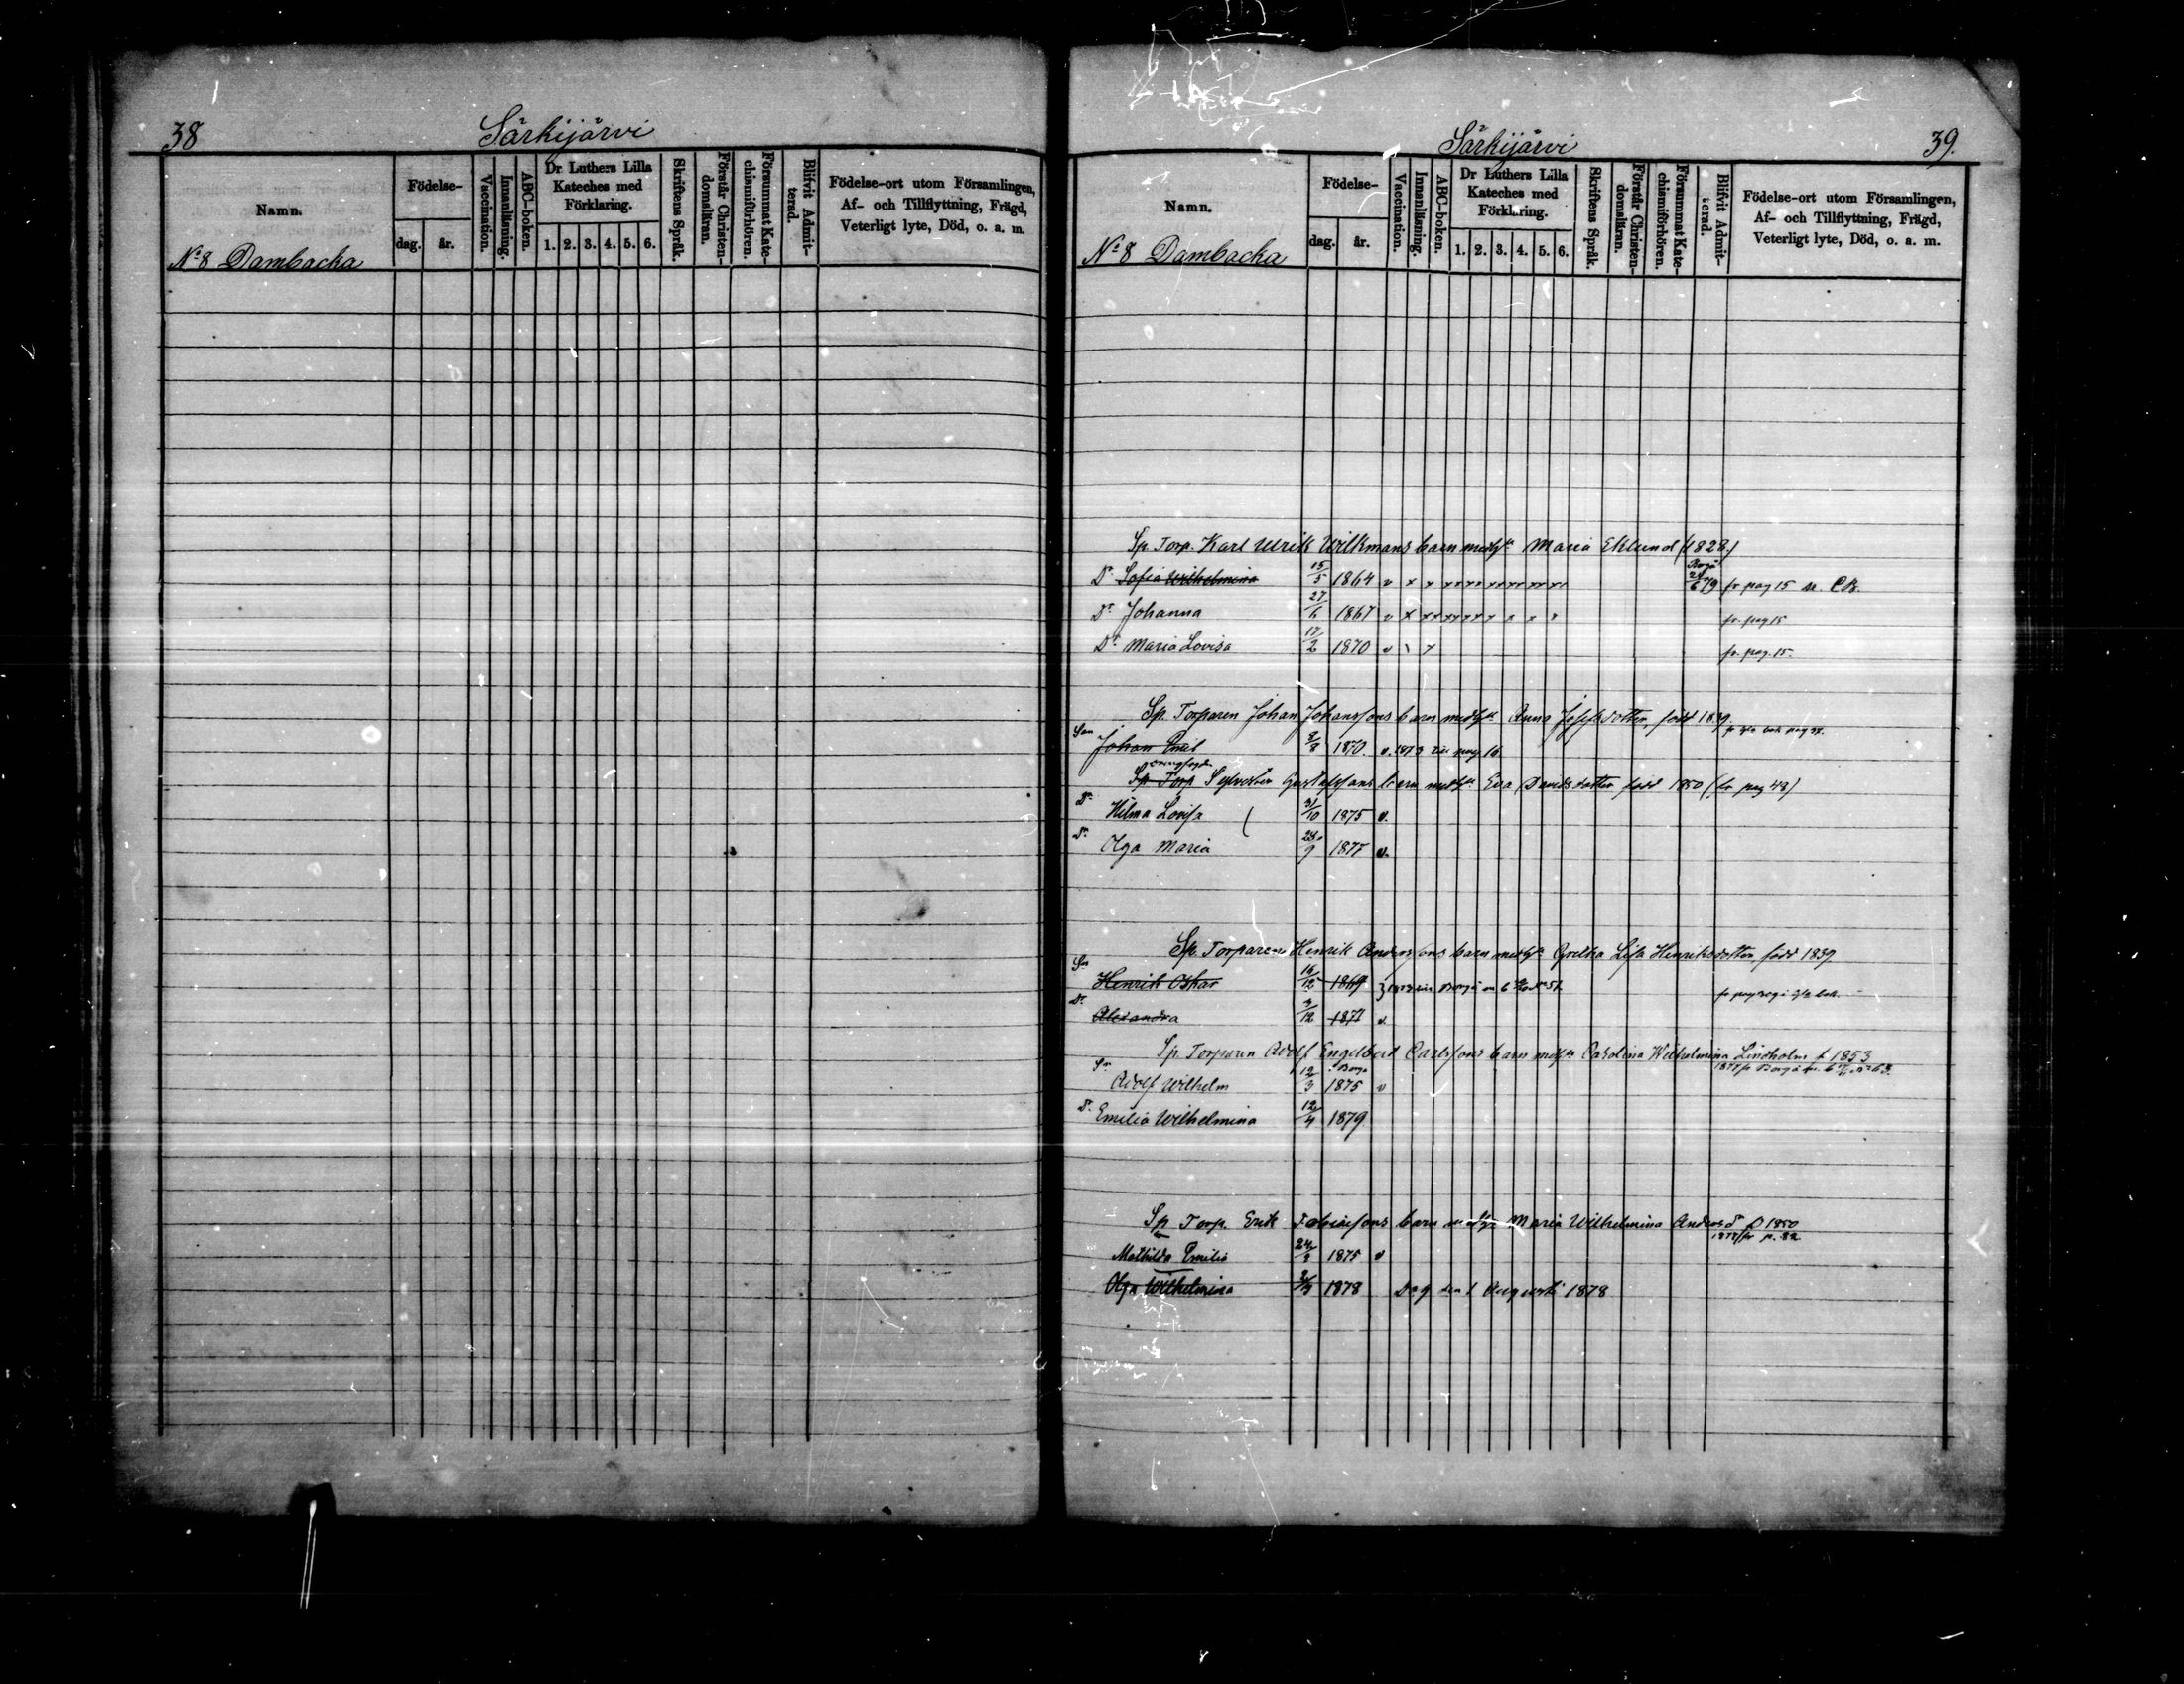 38
Särkijärvi
Namn.
Födelse-
dag. år.
Vaccination.
Innanläsning.
ABC-boken.
Dr Luthers Lilla Kateches med Förklaring.
1. 2. 3. 4. 5. 6.
Skriftens Språk.
Förstår Christendomsläran.
Försummat Katechismiförhören.
Blifvit Admitterad.
Födelse-ort utom Församlingen,
Af- och Tillflyttning, Frägd,
Veterligt lyte, Död, o. a. m.
No 8 Dambacka
Särkijärvi
39.
Namn.
Födelse-
dag. år.
Vaccination.
Innanläsning.
ABC-boken.
Dr Luthers Lilla Kateches med Förklaring.
1. 2. 3. 4. 5. 6.
Skriftens Språk.
Förstår Christendomsläran.
Försummat Katechismiförhören.
Blifvit Admitterad.
Födelse-ort utom Församlingen,
Af- och Tillflyttning, Frägd,
Veterligt lyte, Död, o. a. m.
No 8 Dambacka
Sp. Torp. Karl Ulrik Wilkmans barn med Maria Eklund (1828)
Dr Sofia Wilhelmina 15/5 1864 v fr pag 15
Dr Johanna 27/6 1867 v fr. pag 15
Dr Maria Lovisa 17/2 1870 v fr. pag. 15.
Sp. Torparen Johan Johanssons barn med Anna Josefsdotter, född 1839
Son Johan Emil 8/8 1870. v. 1873 pag 16
Sp Torp Sylvester Gustafssons barn med Eva Davidsdotter född 1850 (fr pag 48)
Dr Hilma Lovisa 31/10 1875 v.
Dr Olga Maria 28/9 1877 v.
Sp. Torparen Henrik Anderssons barn med Gretha Lisa Henriksdotter, född 1839
Sn Henrik Oskar 16/12 1869
Dr Alexandra 3/12 1871 v
Sp. Torparen Adolf Engelbert Carlssons barn med Carolina Wilhelmina Lindholm f. 1853
Sn Adolf Wilhelm 12/3 Borgå 1875 v
Dr Emilia Wilhelmina 12/4 1879
Sp Torp. Erik Tobiassons barn med Maria Wilhelmina Anders dr f 1850
Mathilda Emilia 24/3 1875 v
Olga Wilhelmina 1878 Dog den 1 Augusti 1878